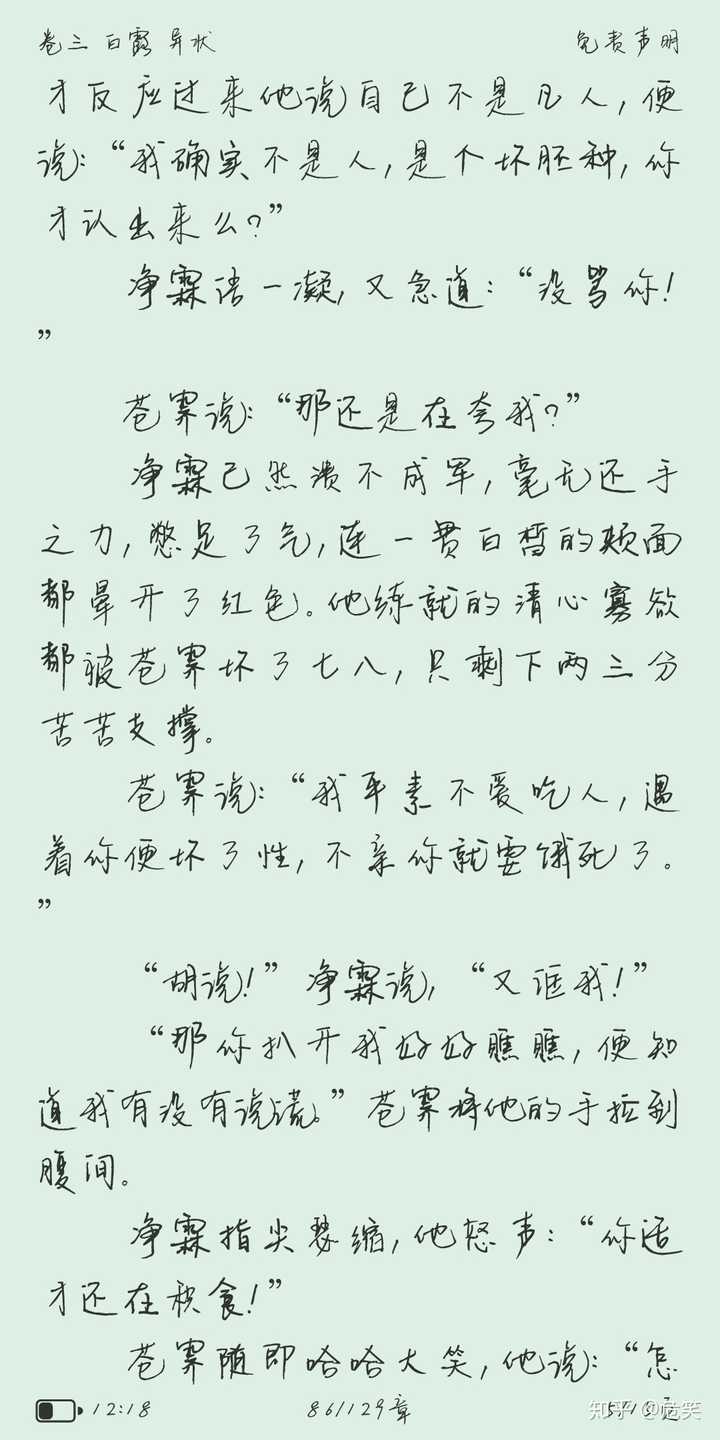 卷三 白露 异状 免责声明
才反应过来他说自己不是凡人，便
说：“我确实不是人，是个坏胚种，你
才认出来么？”
净霖语一凝，又急道：“没骂你！
”
苍霁说：“那还是在夸我？”
净霖已然溃不成军，毫无还手
之力，憋足了气，连一贯白皙的颊面
都晕开了红色。他练就的清心寡欲
都被苍霁坏了七八，只剩下两三分
苦苦支撑。
苍霁说：“我平素不爱吃人，遇
着你便坏了性，不亲你就要饿死了。
”
“胡说！”净霖说，“又诓我！”
“那你扒开我好好瞧瞧，便知
道我有没有说谎。”苍霁将他的手拉到
腹间。
净霖指尖瑟缩，他怒声：“你适
才还在积食！”
苍霁随即哈哈大笑，他说：“怎
12:18 86/129章
知乎 @危笑